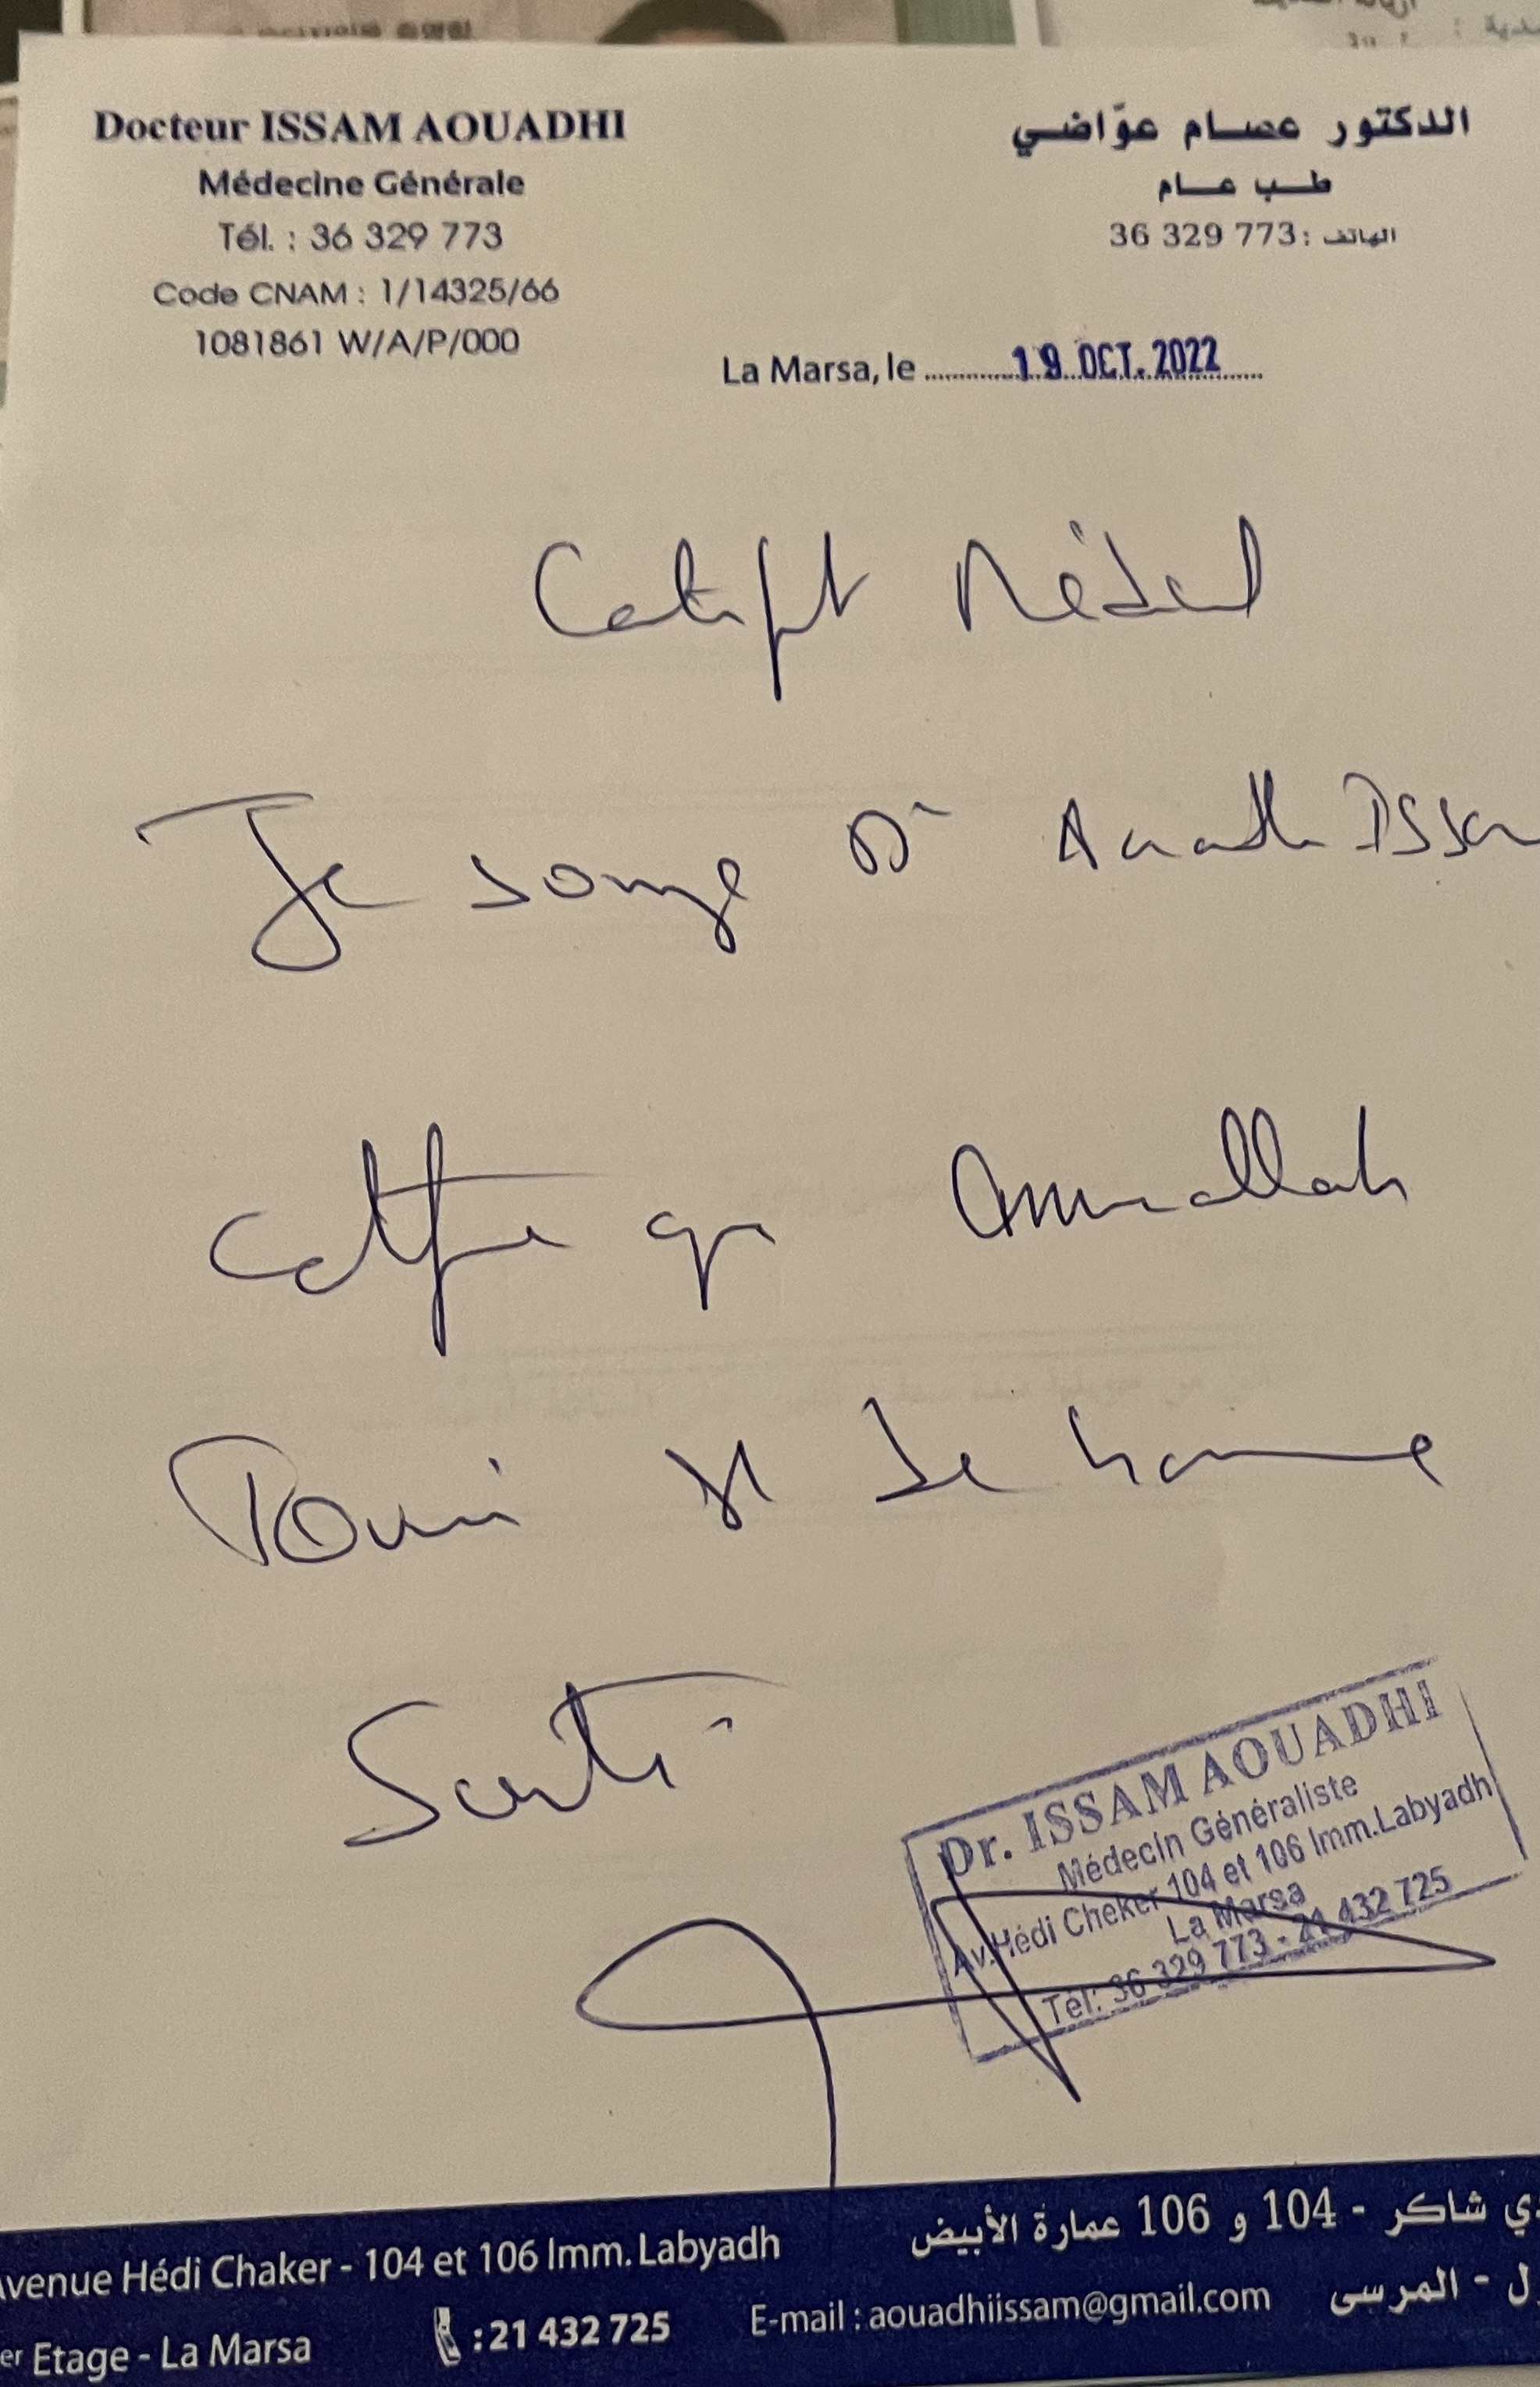 Docteur ISSAM AOUADHI
Médecine Générale
Tél. : 36 329 773
Code CNAM : 1/14325/66
1081861 W/A/P/000
الدكتور عصام عوّاضي
طب عام
الهاتف : 36 329 773
La Marsa, le 19 OCT. 2022
Certificat Médical
Je soussigné Dr Aouadhi Issam
certifie que
est de bonne
Santé
Dr. ISSAM AOUADHI
Médecin Généraliste
Av.Hédi Cheker 104 et 106 Imm.Labyadh
La Marsa
Tél: 36 329 773 - 21 432 725
Avenue Hédi Chaker - 104 et 106 Imm. Labyadh
er Etage - La Marsa
: 21 432 725
E-mail : aouadhiissam@gmail.com
شاكر - 104 و 106 عمارة الأبيض
ل - المرسى